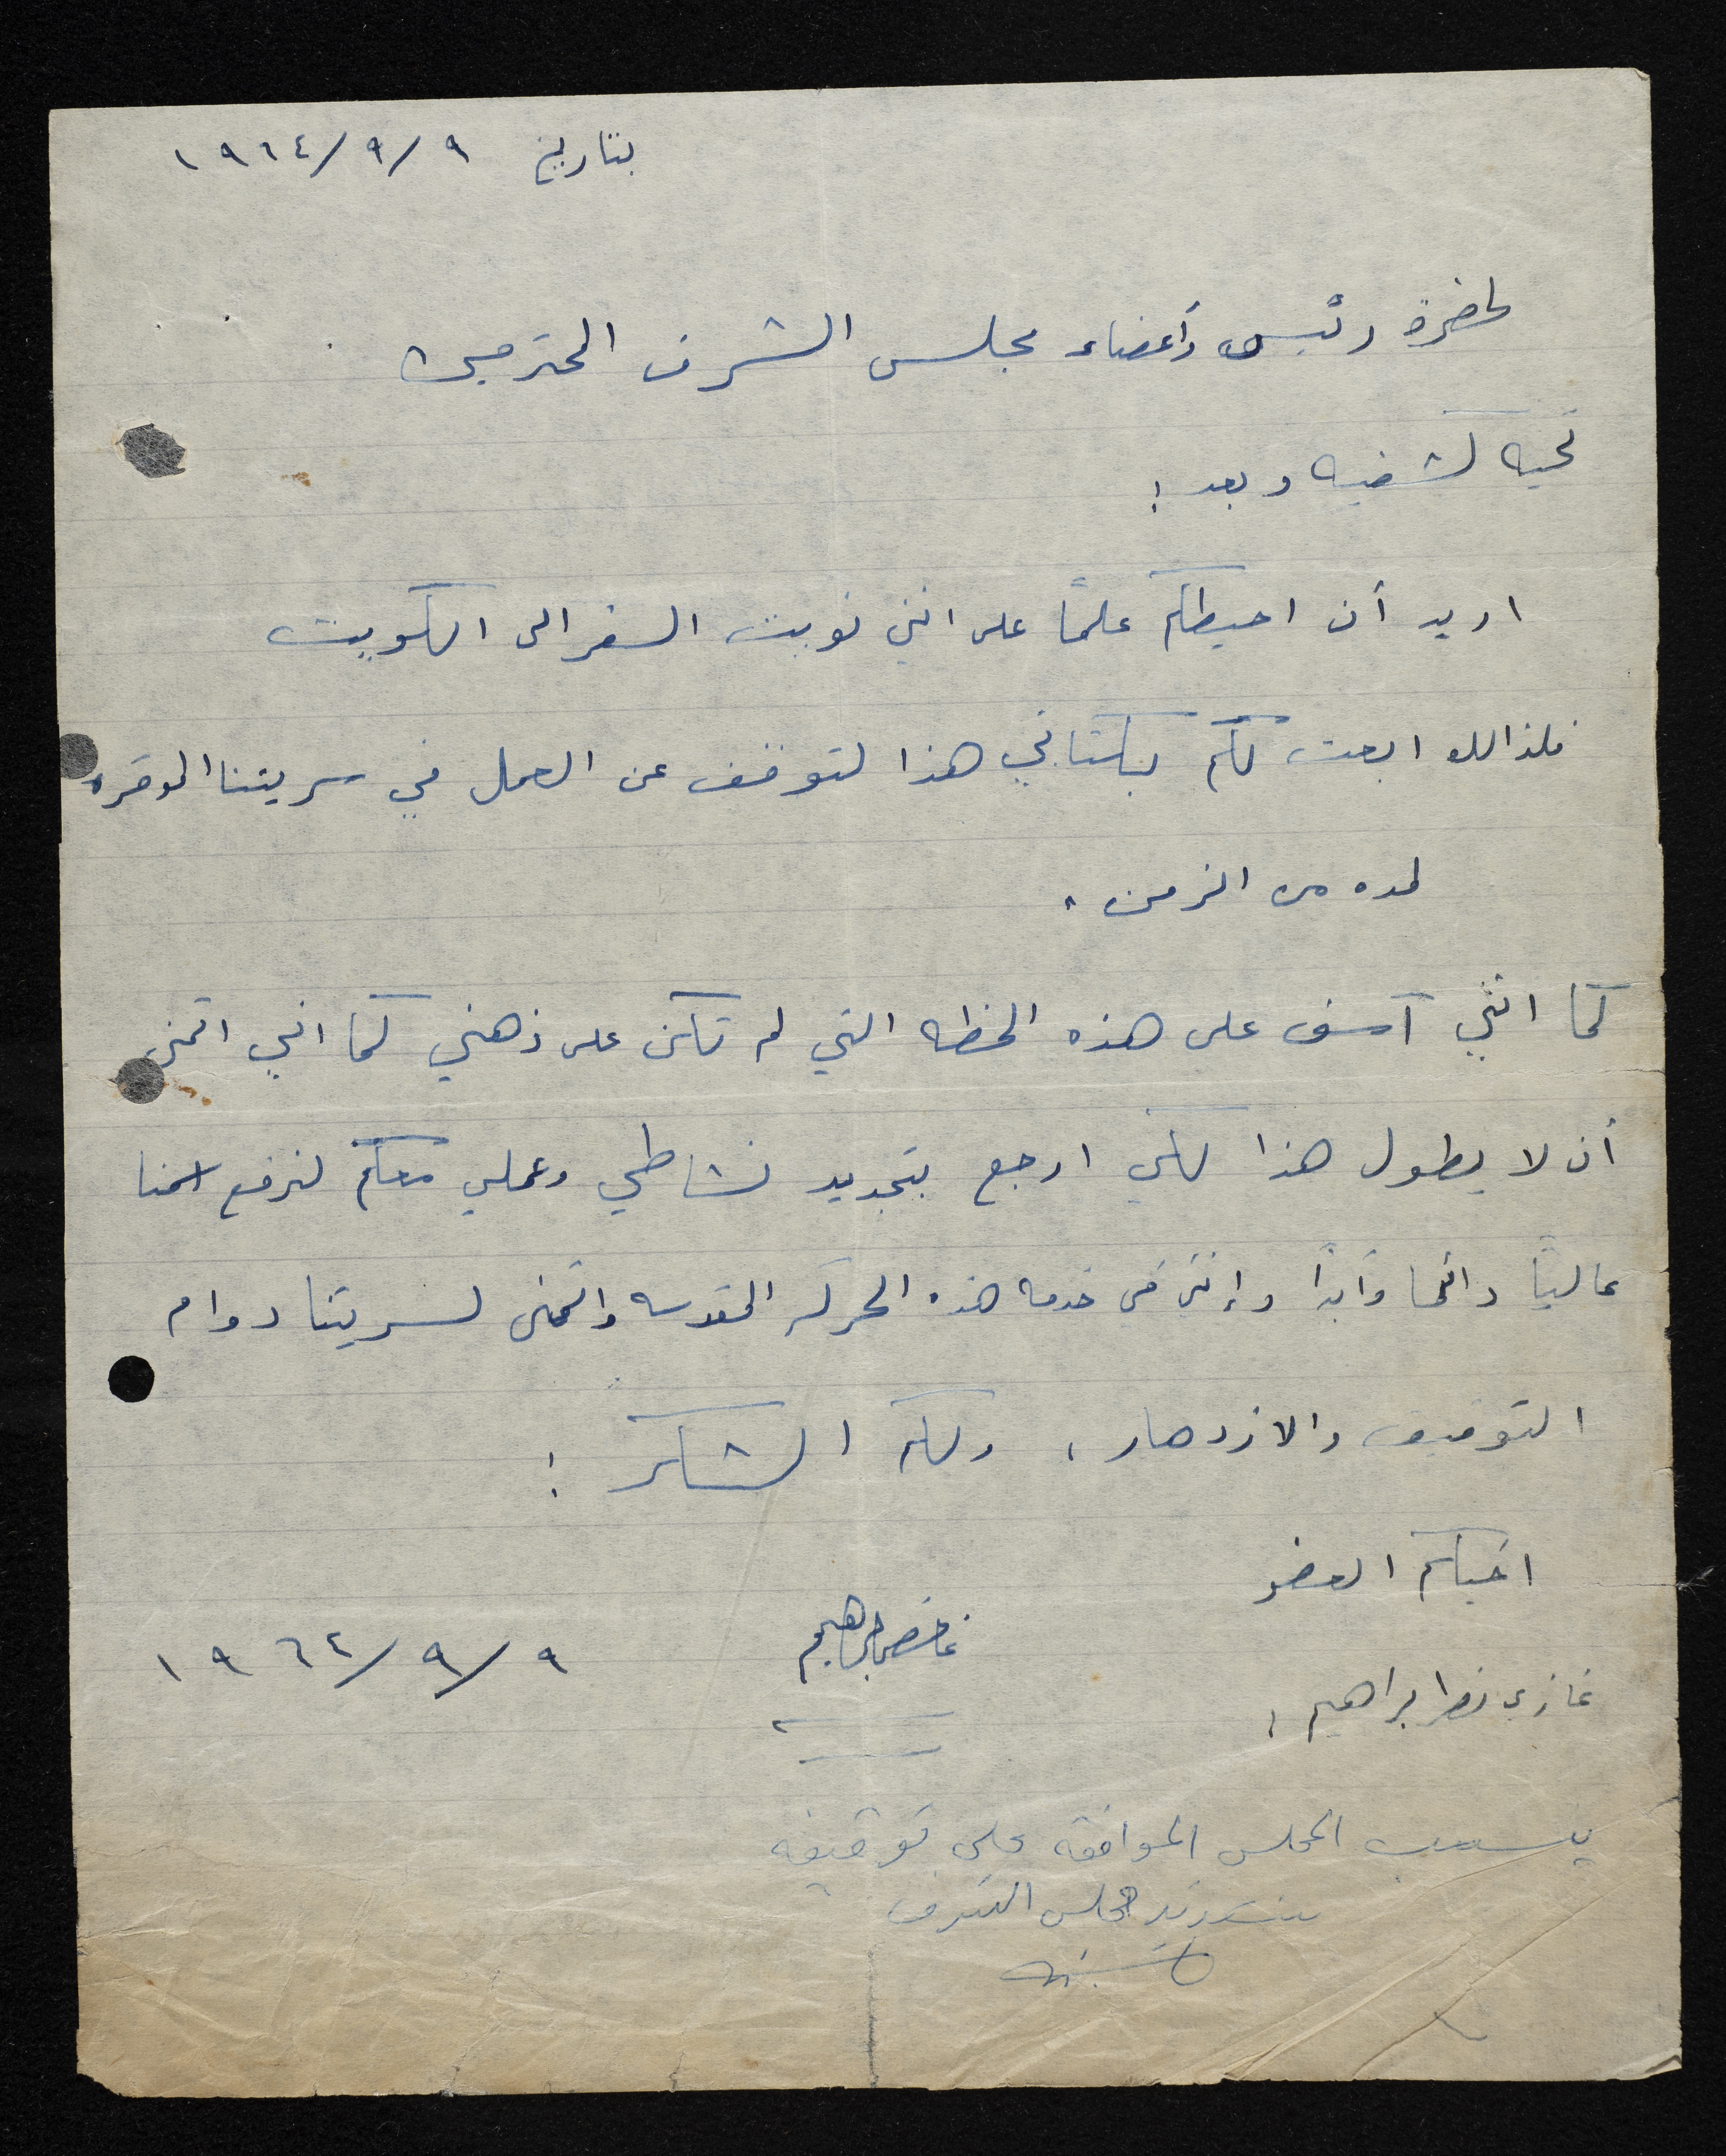 بتاريخ ٩/٩/١٩٦٤
لحضرة رئيس وأعضاء مجلس الشرف المحترمين
تحيه كشفيه وبعد :
اريد أن احيطكم علماً على انني نويت السفر الى الكويت
فلذالك ابعث لكم بكتابي هذا لتوقف عن العمل في سريتنا الموقره
لمده من الزمن .
كما انني آسف على هذه الخطه التي لم تكن على ذهني كما اني اتمنى
أن لا يطول هذا لكي ارجع بتجديد نشاطي وعملي معكم لنرفع اسمنا
عالياً دائما وأبداً وإنني في خدمه هذه الحركه المقدسه واتمنى لسريتنا دوام
التوفيق والازدهار ، ولكم الشكر :
اخيكم العضو
غازي نصر ابراهيم ، ٩/٩/١٩٦٤
ينسب المجلس الموافقه على توقيفه
مجلس الشرف